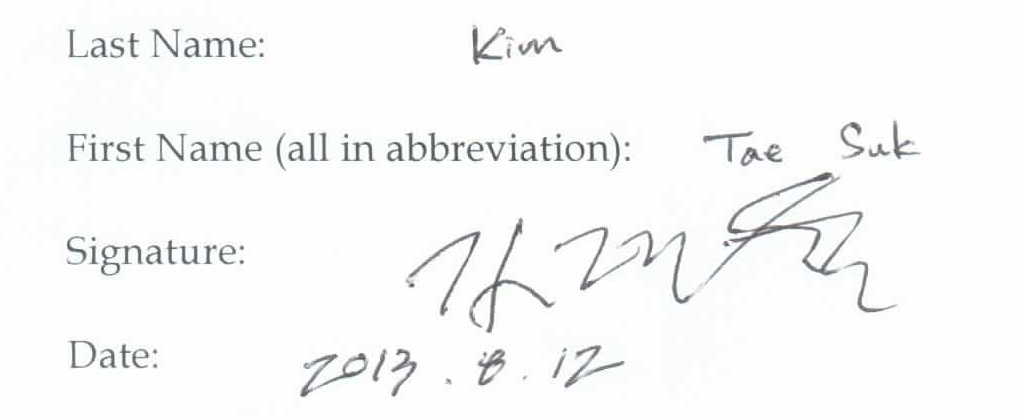 Last Name: Kim
First Name (all in abbreviation): Tae Suk
Signature:
Date: 2013.8.12